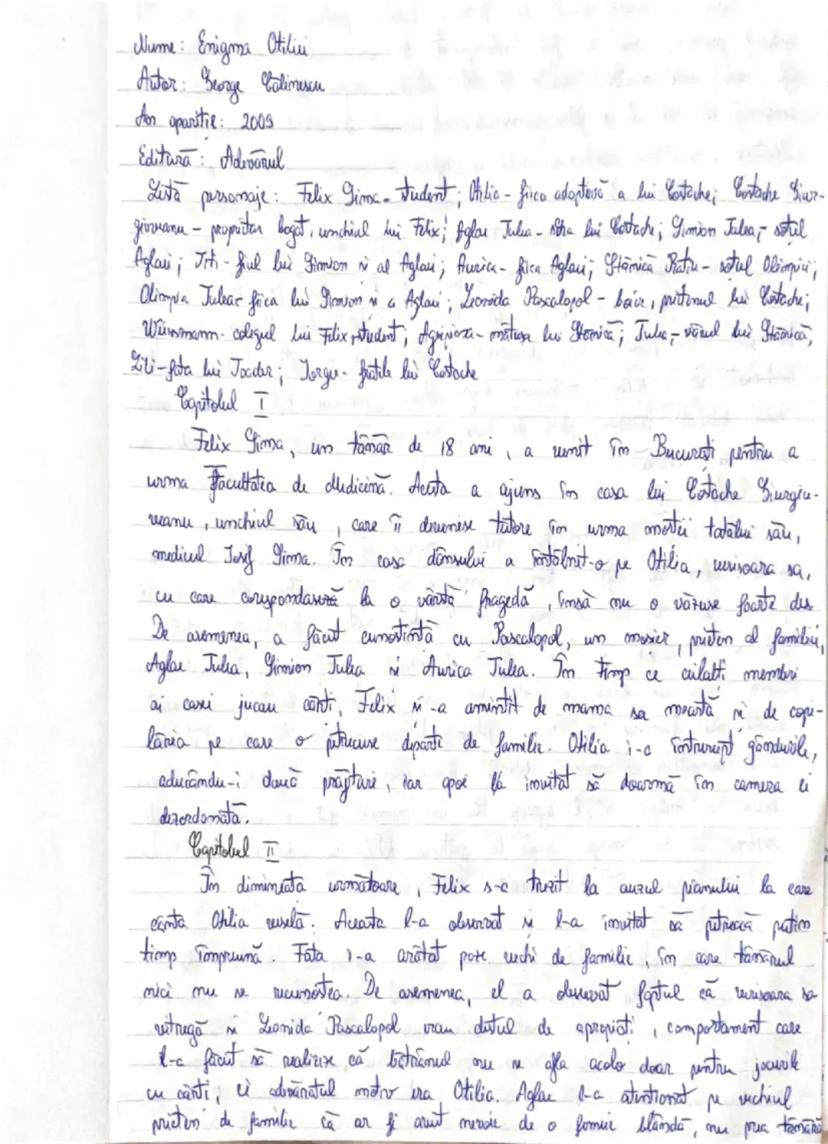 Nume: Enigma Otiliei
Autor: George Călinescu
An apariție: 2009
Editură: Adevărul
Listă personaje: Felix Sima - student; Otilia - fiica adoptivă a lui Costache; Costache Giur-
giuveanu - proprietar bogat, unchiul lui Felix; Aglae Tulea - sora lui Costache; Simion Tulea - soțul
Aglaei; Titi - fiul lui Simion și al Aglaei; Aurica - fiica Aglaei; Stănică Rațiu - soțul Olimpiei;
Olimpia Tulea - fiica lui Simion și a Aglaei; Leonida Pascalopol - boier, prietenul lui Costache;
colegul lui Felix, student; mătușa lui Stănică; vărul lui Stănică;
Lili - fata lui Toader; Iorgu - fratele lui Costache
Capitolul I
Felix Sima, un tânăr de 18 ani, a venit în București pentru a
urma Facultatea de Medicină. Acesta a ajuns în casa lui Costache Giurgiu-
veanu, unchiul său, care îi devenise tutore în urma morții tatălui său,
medicul Iosif Sima. În casa dânsului a întâlnit-o pe Otilia, verișoara sa,
cu care corespondaseră la o vârstă fragedă, însă nu o văzuse foarte des.
De asemenea, a făcut cunoștință cu Pascalopol, un moșier, prieten al familiei,
Aglae Tulea, Simion Tulea și Aurica Tulea. În timp ce ceilalți membri
ai casei jucau cărți, Felix și-a amintit de mama sa moartă și de copi-
lăria pe care o petrecuse departe de familie. Otilia i-a întrerupt gândurile,
aducându-i două prăjituri, iar apoi l-a invitat să doarmă în camera ei
dezordonată.
Capitolul II
În dimineața următoare, Felix s-a trezit la auzul pianului la care
cânta Otilia veselă. Aceasta l-a observat și l-a invitat să petreacă puțin
timp împreună. Fata i-a arătat poze vechi de familie, în care tânărul
nici nu se recunoștea. De asemenea, el a observat faptul că verișoara sa
vitregă și Leonida Pascalopol erau destul de apropiați, comportament care
l-a făcut să realizeze că bătrânul nu se afla acolo doar pentru jocurile
cu cărți, ci adevăratul motiv era Otilia. Aglae l-a atenționat pe vechiul
prieten de familie că ar fi avut nevoie de o femeie blândă, nu prea tânără